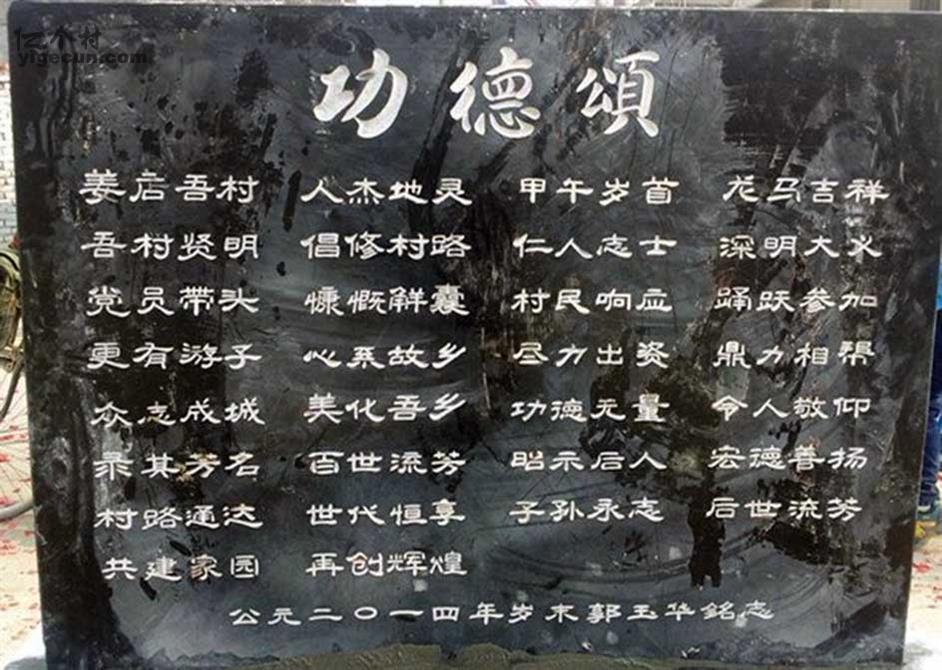 亿个村
yigecun.com
功德頌
姜店吾村 人杰地灵 甲午岁首 龙马吉祥
吾村贤明 倡修村路 仁人志士 深明大义
党员带头 慷慨解囊 村民响应 踊跃参加
更有游子 心系故乡 尽力出资 鼎力相帮
众志成城 美化吾乡 功德无量 令人敬仰
录其芳名 百世流芳 昭示后人 宏德善扬
村路通达 世代恒享 子孙永志 后世流芳
共建家园 再创辉煌
公元二〇一四年岁末郭玉华銘志